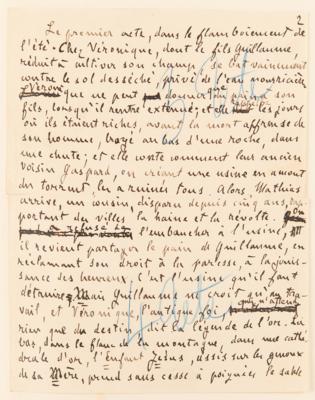 2
Le premier acte, dans le flamboiement de
l'été. Chez Véronique, dont le fils Guillaume,
réduit à cultiver son champ, se bat vainement
contre le sol desséché, privé de l'eau nourricière.
Véronique ne peut donner que du pain à son
fils, lorsqu'il rentre exténué; et elle les jours
où ils étaient riches, avant la mort affreuse de
son homme, broyé au bas d'une roche, dans
une chute; et elle conte comment leur ancien
voisin Gaspard, en créant une usine en amont
du torrent, les a ruinés tous. Alors, Mathias
arrive, un cousin, disparu depuis cinq ans, rap-
portant des villes la haine et la révolte. On
a refusé de l'embaucher à l'usine,
il revient partager le pain de Guillaume, en
réclamant son droit à la paresse, à la jouis-
sance des heureux. C'est l'usine qu'il faut
détruire. Mais Guillaume ne croit qu'au tra-
vail, et Véronique, l'antique
rien que du destin, dit la légende de l'or. Là-
bas, dans le flanc de la montagne, dans une cathé-
drale d'or, l'Enfant Jésus, assis sur les genoux
de sa Mère, prend sans cesse à poignées le sable